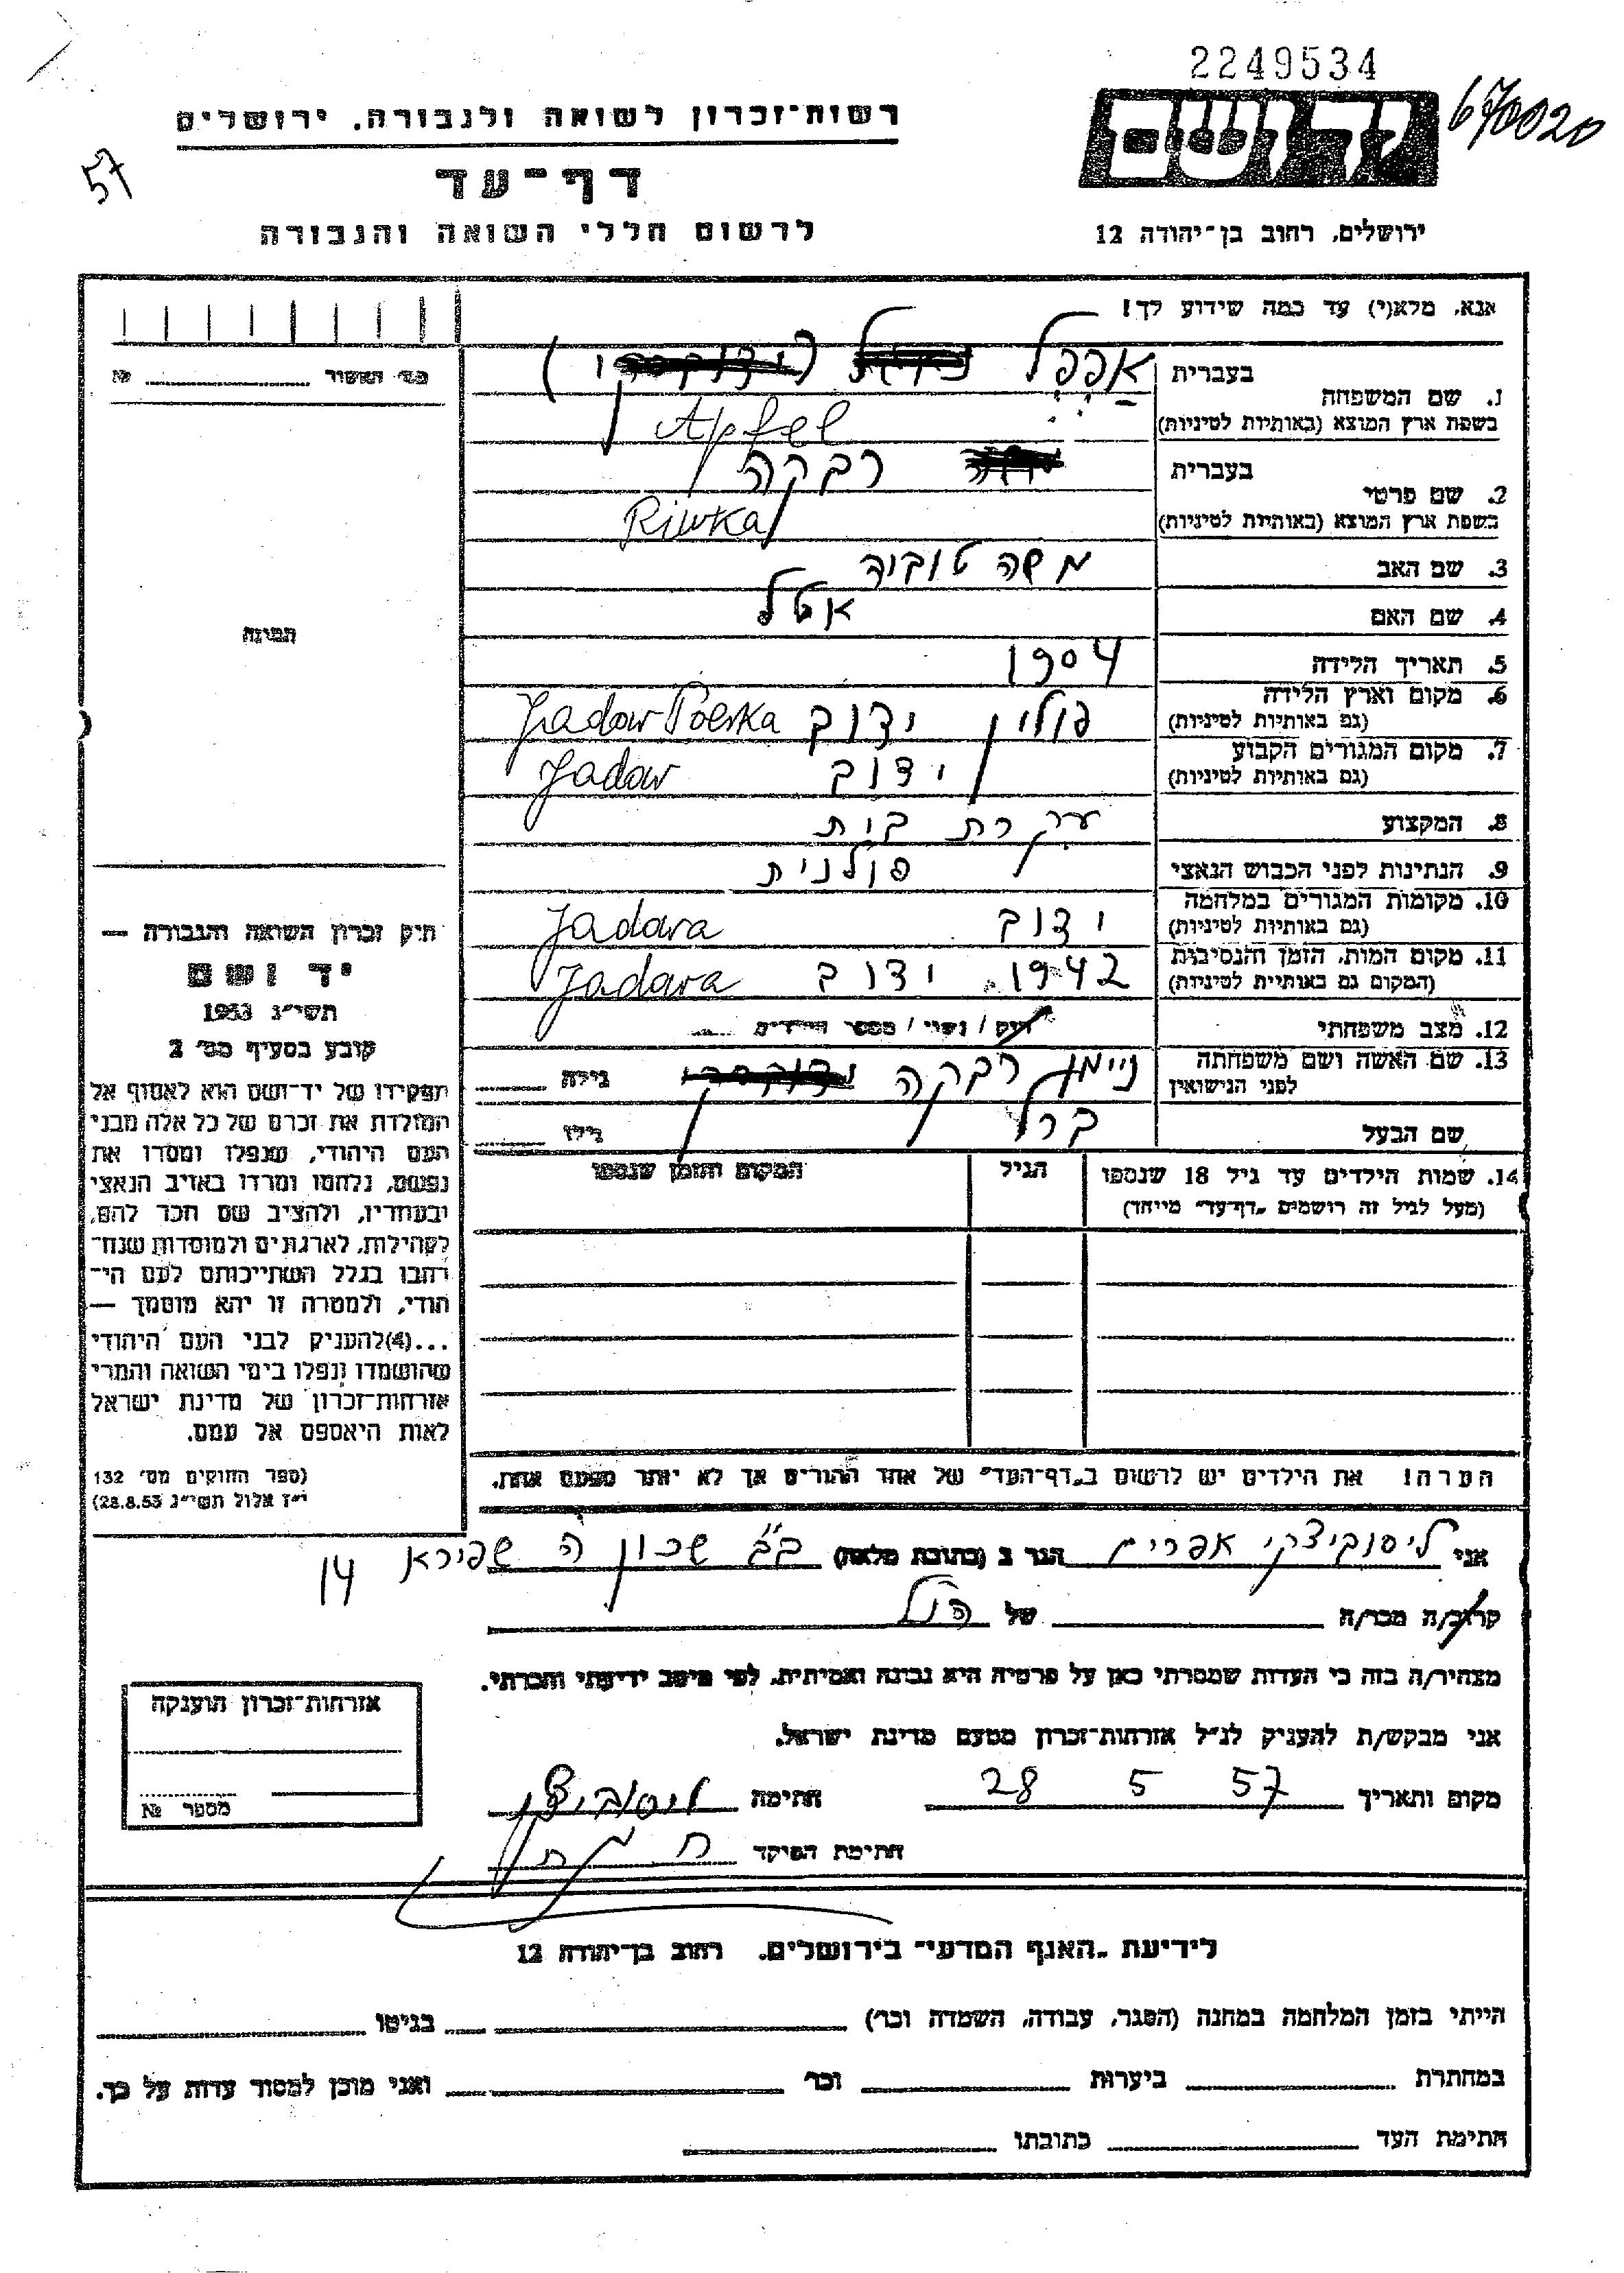 2249534
670020
57
רשות־זכרון לשואה ולגבורה, ירושלים
דף־עד
לרשום חללי השואה והגבורה
יד ושם
ירושלים, רחוב בן־יהודה 12
אנא, מלא(י) עד כמה שידוע לך!
מס׳ האשור № 
תמונה
1. שם המשפחה בעברית אפפל
בשפת ארץ המוצא (באותיות לטיניות) Apfel
2. שם פרטי בעברית רבקה
בשפת ארץ המוצא (באותיות לטיניות) Riwka
3. שם האב משה טוביה
4. שם האם אטל
5. תאריך הלידה 1904
6. מקום וארץ הלידה (גם באותיות לטיניות) פולין ידוב Jadow Polska
7. מקום המגורים הקבוע (גם באותיות לטיניות) ידוב Jadow
8. המקצוע עקרת בית
9. הנתינות לפני הכבוש הנאצי פולנית
10. מקומות המגורים במלחמה (גם באותיות לטיניות) ידוב Jadara
11. מקום המות, הזמן והנסיבות (המקום גם באותיות לטיניות) 1942 ידוב Jadara
12. מצב משפחתי רוק / נשוי / מספר הילדים
13. שם האשה ושם משפחתה לפני הנישואין ניימן רבקה גילה
שם הבעל ברל גילו
14. שמות הילדים עד גיל 18 שנספו הגיל המקום והזמן שנספו
(מעל לגיל זה רושמים „דף־עד" מיוחד)
הערה! את הילדים יש לרשום ב„דף־העד" של אחד ההורים אך לא יותר מפעם אחת.
חיק זכרון השואה והגבורה —
יד ושם
תשי״ג 1953
קובע בסעיף מס׳ 2
תפקידו של יד־ושם הוא לאסוף אל
המולדת את זכרם של כל אלה מבני
העם היהודי, שנפלו ומסרו את
נפשם, נלחמו ומרדו באויב הנאצי
ובעוזריו, ולהציב שם וזכר להם,
לקהילות, לארגונים ולמוסדות שנח־
רבו בגלל השתייכותם לעם הי־
הודי, ולמטרה זו יהא מוסמך —
...(4)להעניק לבני העם היהודי
שהושמדו ונפלו בימי השואה והמרי
אזרחות־זכרון של מדינת ישראל
לאות היאספם אל עמם.
(ספר החוקים מס׳ 132
י״ז אלול תשי״ג 28.8.53)
אני ליסוביצקי אפרים הגר ב (כתובת מלאה) בב שכון ה שפירא 14
קרוב/ה מכר/ה של הנל
מצהיר/ה בזה כי העדות שמסרתי כאן על פרטיה היא נכונה ואמיתית, לפי מיטב ידיעתי והכרתי.
אני מבקש/ת להעניק לנ״ל אזרחות־זכרון מטעם מדינת ישראל.
מקום ותאריך 28 5 57 חתימה ליסוביצקי
חתימת הפוקד
אזרחות־זכרון הוענקה
מספר №
לידיעת „האגף המדעי" בירושלים. רחוב בן־יהודה 12
הייתי בזמן המלחמה במחנה (הסגר, עבודה, השמדה וכו׳) בגיטו
במחתרת ביערות וכו׳ ואני מוכן למסור עדות על כך.
חתימת העד כתובתו